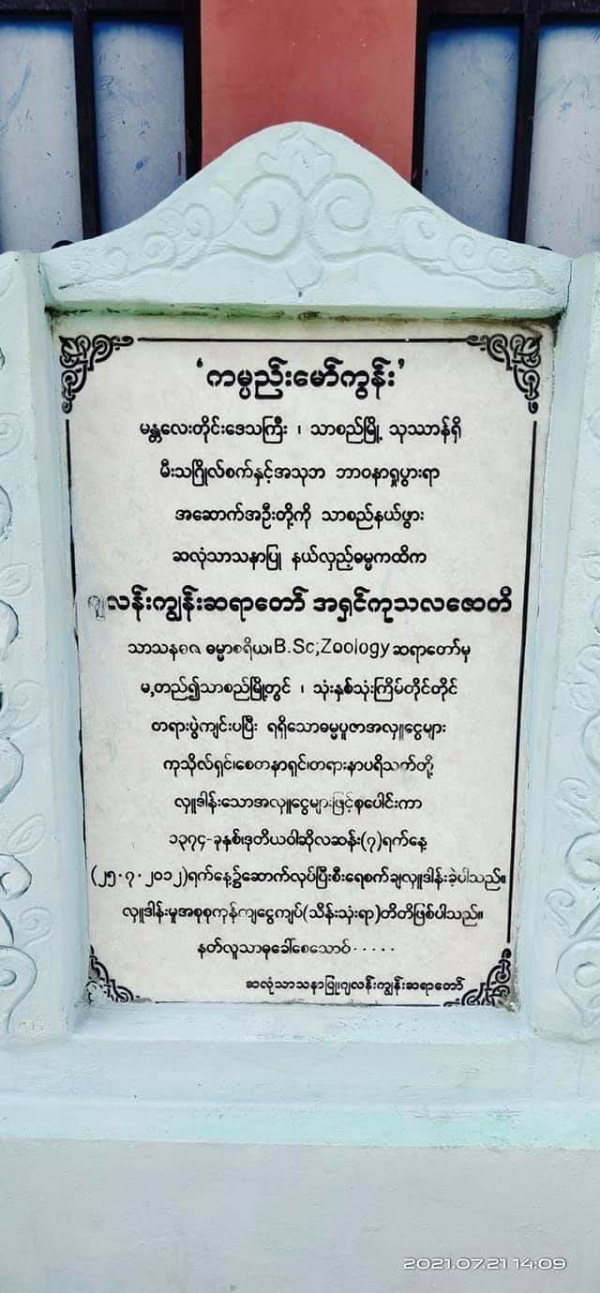 ‘ကမ္ပည်းမော်ကွန်း’
မန္တလေးတိုင်းဒေသကြီး ၊ သာစည်မြို့ သုဿာန်ရှိ
မီးသဂြိုလ်စက်နှင့်အသုဘ ဘာဝနာရှုပွားရာ
အဆောက်အဦးတို့ကို သာစည်နယ်ဖွား
ဆလုံသာသနာပြု နယ်လှည့်ဓမ္မကထိက
ဂျလန်းကျွန်းဆရာတော် အရှင်ကုသလဇောတိ
သာသနဓဇ ဓမ္မာစရိယ၊B.Sc;Zoology ဆရာတော်မှ
မ,တည်၍သာစည်မြို့တွင် ၊ သုံးနှစ်သုံးကြိမ်တိုင်တိုင်
တရားပွဲကျင်းပပြီး ရရှိသောဓမ္မပူဇာအလှူငွေများ
ကုသိုလ်ရှင်၊စေတနာရှင်၊တရားနာပရိသတ်တို့
လှူဒါန်းသောအလှူငွေများဖြင့်စုပေါင်းကာ
၁၃၇၄-ခုနှစ်၊ဒုတိယဝါဆိုလဆန်း(၇)ရက်နေ့
(၂၅.၇.၂၀၁၂)ရက်နေ့၌ဆောက်လုပ်ပြီးစီးရေစက်ချလှူဒါန်းခဲ့ပါသည်။
လှူဒါန်းမှုအစုစုကုန်ကျငွေကျပ်(သိန်းသုံးရာ)တိတိဖြစ်ပါသည်။
နတ်လူသာဓုခေါ်စေသောဝ်.....
ဆလုံသာသနာပြုဂျလန်းကျွန်းဆရာတော်
2021.07.21 14:09